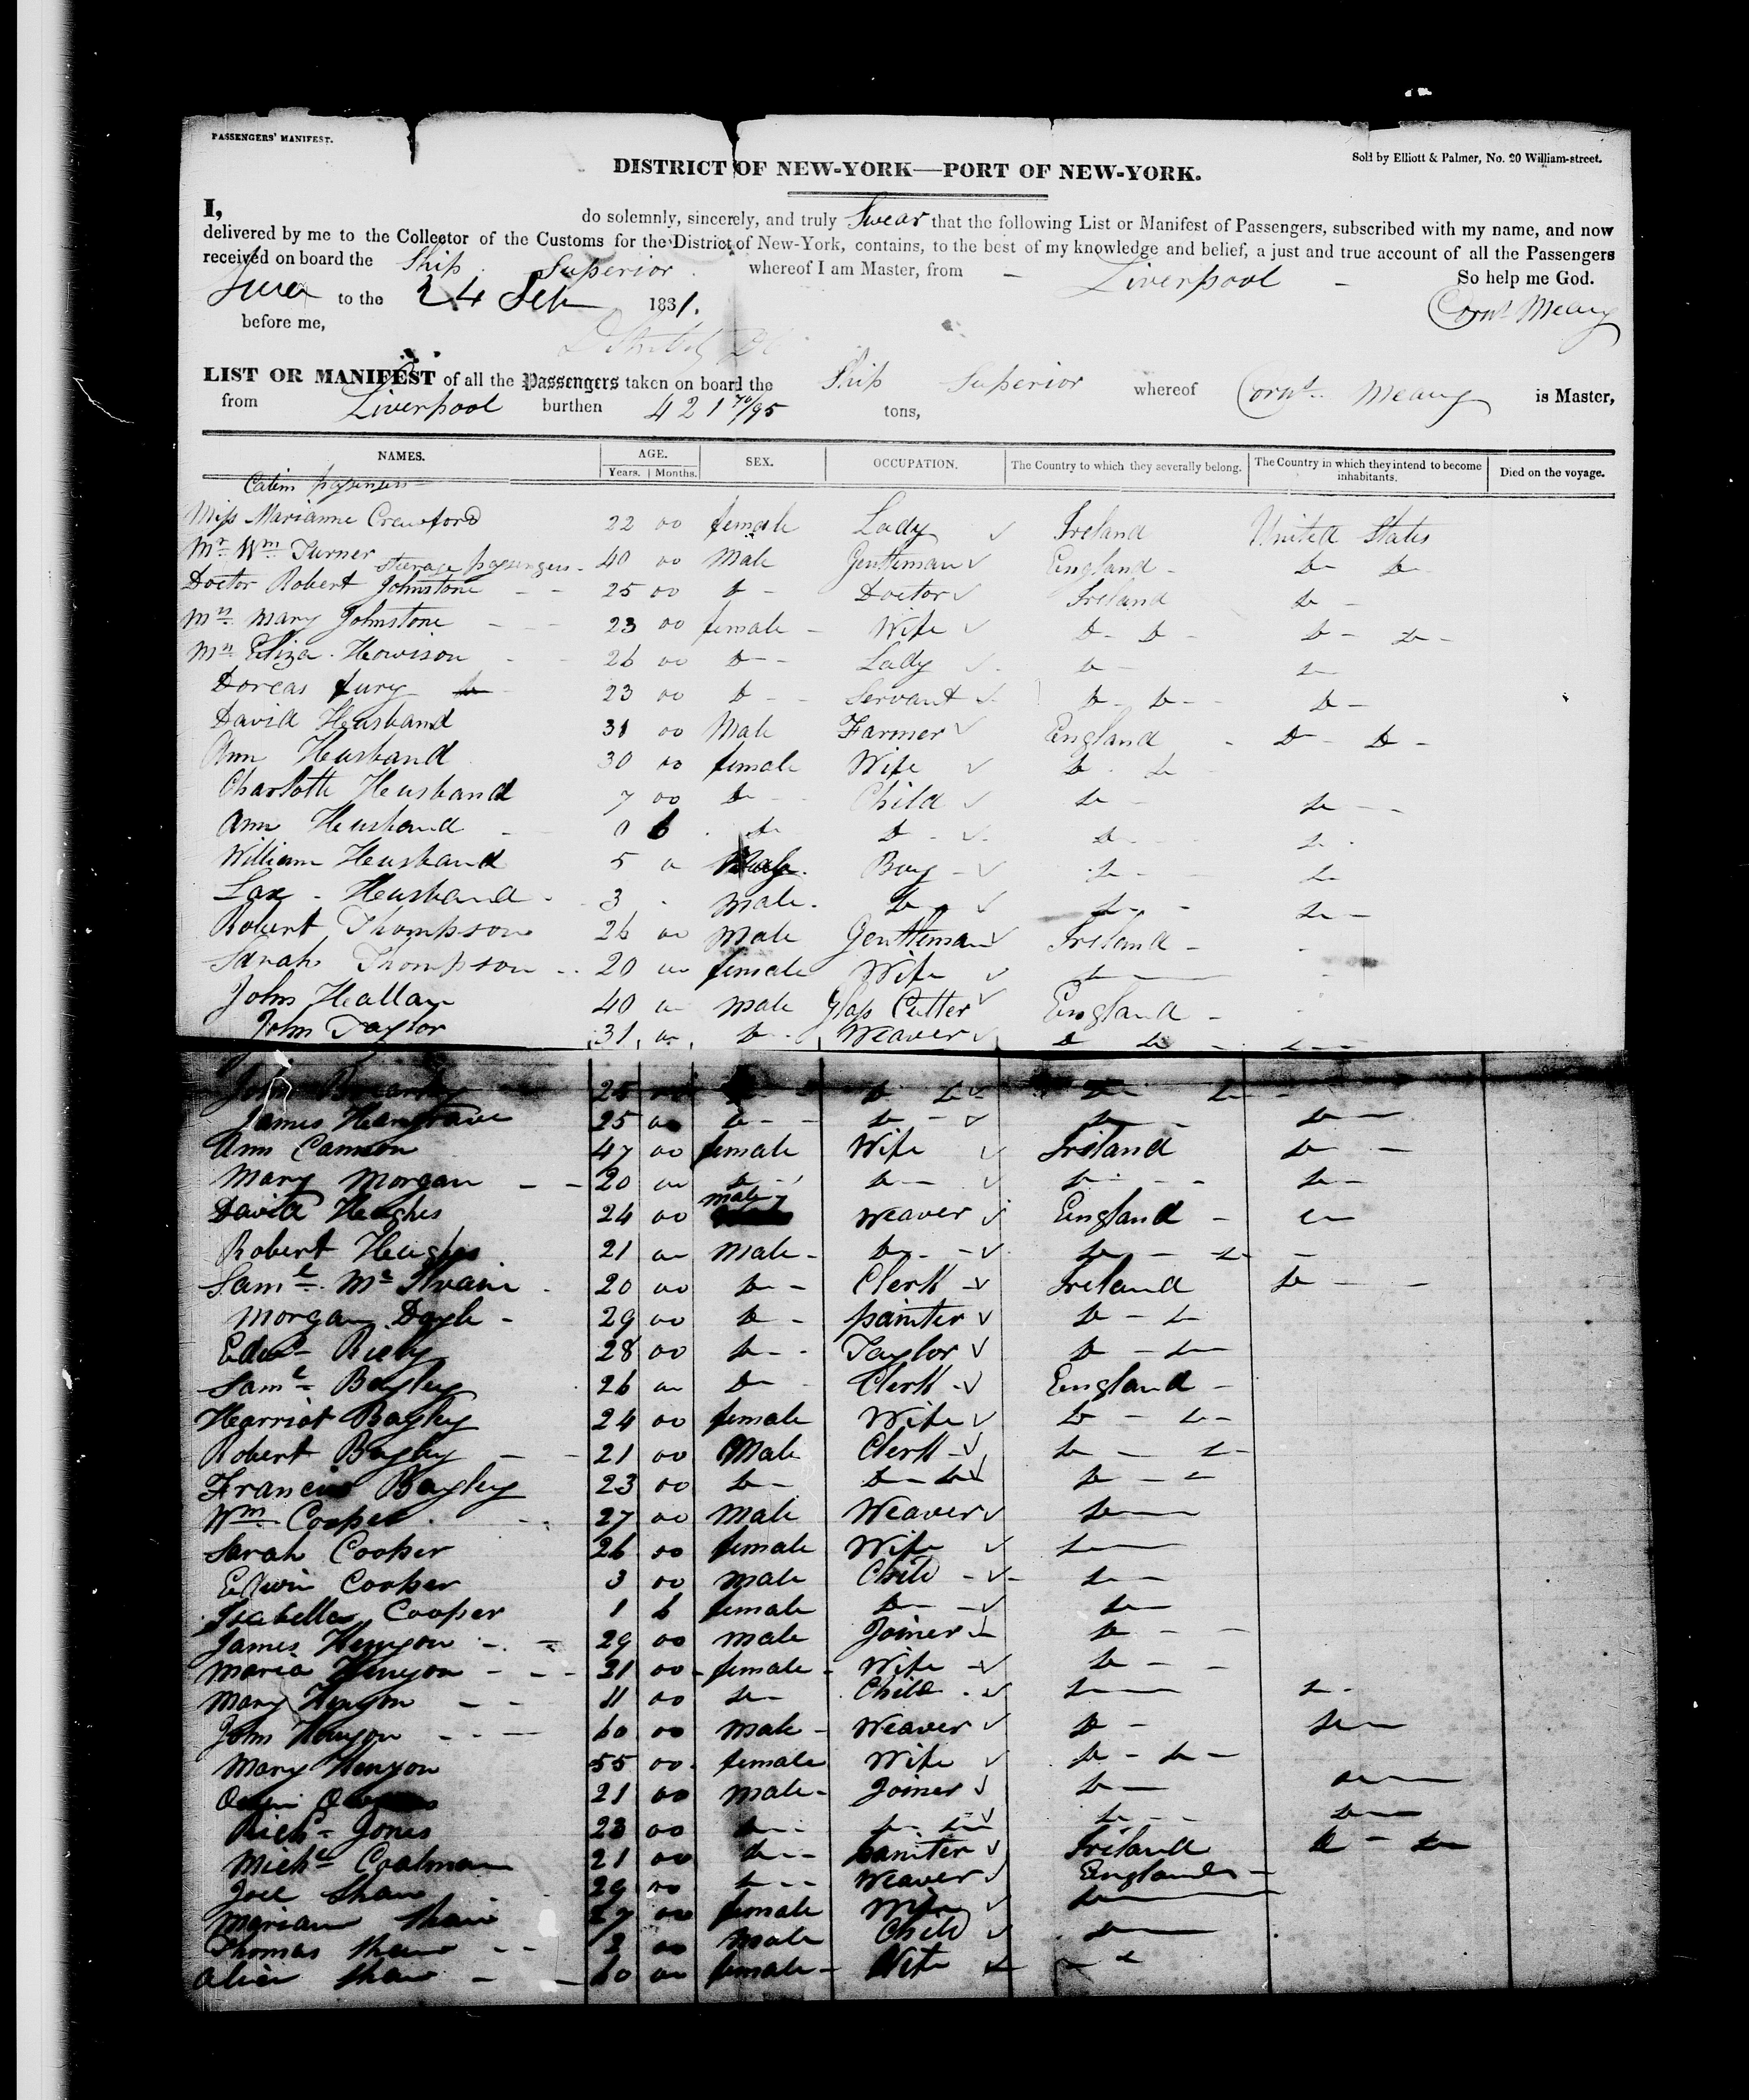 PASSENGERS' MANIFEST.
Sold by Elliott & Palmer, No. 20 William-street.
DISTRICT OF NEW-YORK—PORT OF NEW-YORK.
I, do solemnly, sincerely, and truly Swear that the following List or Manifest of Passengers, subscribed with my name, and now
delivered by me to the Collector of the Customs for the District of New-York, contains, to the best of my knowledge and belief, a just and true account of all the Passengers
received on board the Ship Superior whereof I am Master, from - Liverpool - So help me God.
to the 24 Sep 1831. Corns. Meany
before me,
LIST OR MANIFEST of all the Passengers taken on board the Ship Superior whereof Corns. Meany is Master,
from Liverpool burthen 421 70/95 tons,
NAMES. AGE. SEX. OCCUPATION. The Country to which they severally belong. The Country in which they intend to become inhabitants. Died on the voyage.
Years. Months.
Cabin passengers
Miss Marianne Crawford 22 00 female Lady Ireland United States
Mr. Wm Turner 40 00 Male Gentleman England - Do Do
Steerage passengers
Doctor Robert Johnstone 25 00 Do - Doctor Ireland Do -
Mrs. Mary Johnstone 23 00 female - Wife Do - Do - Do - Do -
Mrs. Eliza Howison 26 00 Do - Lady Do - Do
Dorcas Fury Do 23 00 Do - Servant Do - Do - Do -
David Heusband 31 00 Male Farmer England - Do - Do -
Ann Heusband 30 00 female Wife Do Do
Charlotte Heusband 7 00 Do - Child Do - Do -
Ann Heusband 0 6 Do Do Do Do
William Heusband 5 Boy Do Do
Lax - Heusband 3 - male Do Do - Do -
Robert Thompson 26 00 Male Gentleman Ireland -
Sarah Thompson 20 00 female Wife Do
John Hallam 40 00 male Glass Cutter England -
John Taylor 31 00 Do Weaver Do Do - Do
John 25 Do Do Do Do -
James Hargrave 25 00 Do - Do - Do - Do -
Ann Cannon 47 00 female Wife Ireland Do -
Mary Morgan - - 20 00 Do - Do - Do - Do -
David Hughes 24 00 male Weaver England - Do
Robert Hughes 21 00 Male - Do - Do - Do -
Saml. Mc Ilvain 20 00 Do - Clerk Ireland Do -
Morgan Doyle - 29 00 Do - painter Do - Do
Edwd. Riely 28 00 Do - Taylor Do - Do
Saml. Bayley 26 00 Do Clerk England -
Harriot Bayley 24 00 female Wife Do - Do
Robert Bayley - - 21 00 Male Clerk Do - Do
Francis Bayley 23 00 Do - Do - Do Do - Do
Wm Cooper 27 00 Male Weaver Do
Sarah Cooper 26 00 female Wife Do
Edwin Cooper 3 00 male Child Do -
Isabella Cooper 1 6 female Do - Do
James Kenyon - 29 00 male Joiner Do - -
Maria Kenyon - - 21 00 female - Wife Do - -
Mary Kenyon - - 11 00 Do Child Do Do
John Kenyon - - 60 00 male - Weaver Do - Do
Mary Kenyon 55 00 female Wife Do - Do -
21 00 male - Joiner Do - Do
Richd. Jones 23 00 Do - Do Do Do - Do
Michl. Coalman 21 00 Do - painter Ireland Do - Do
Joel Shaw 29 00 Do - Weaver England -
Mariam Shaw 27 00 female Wife Do
Thomas Shaw - - 3 00 Male Child Do
Alice Shaw - - 60 00 female - Wife - Do